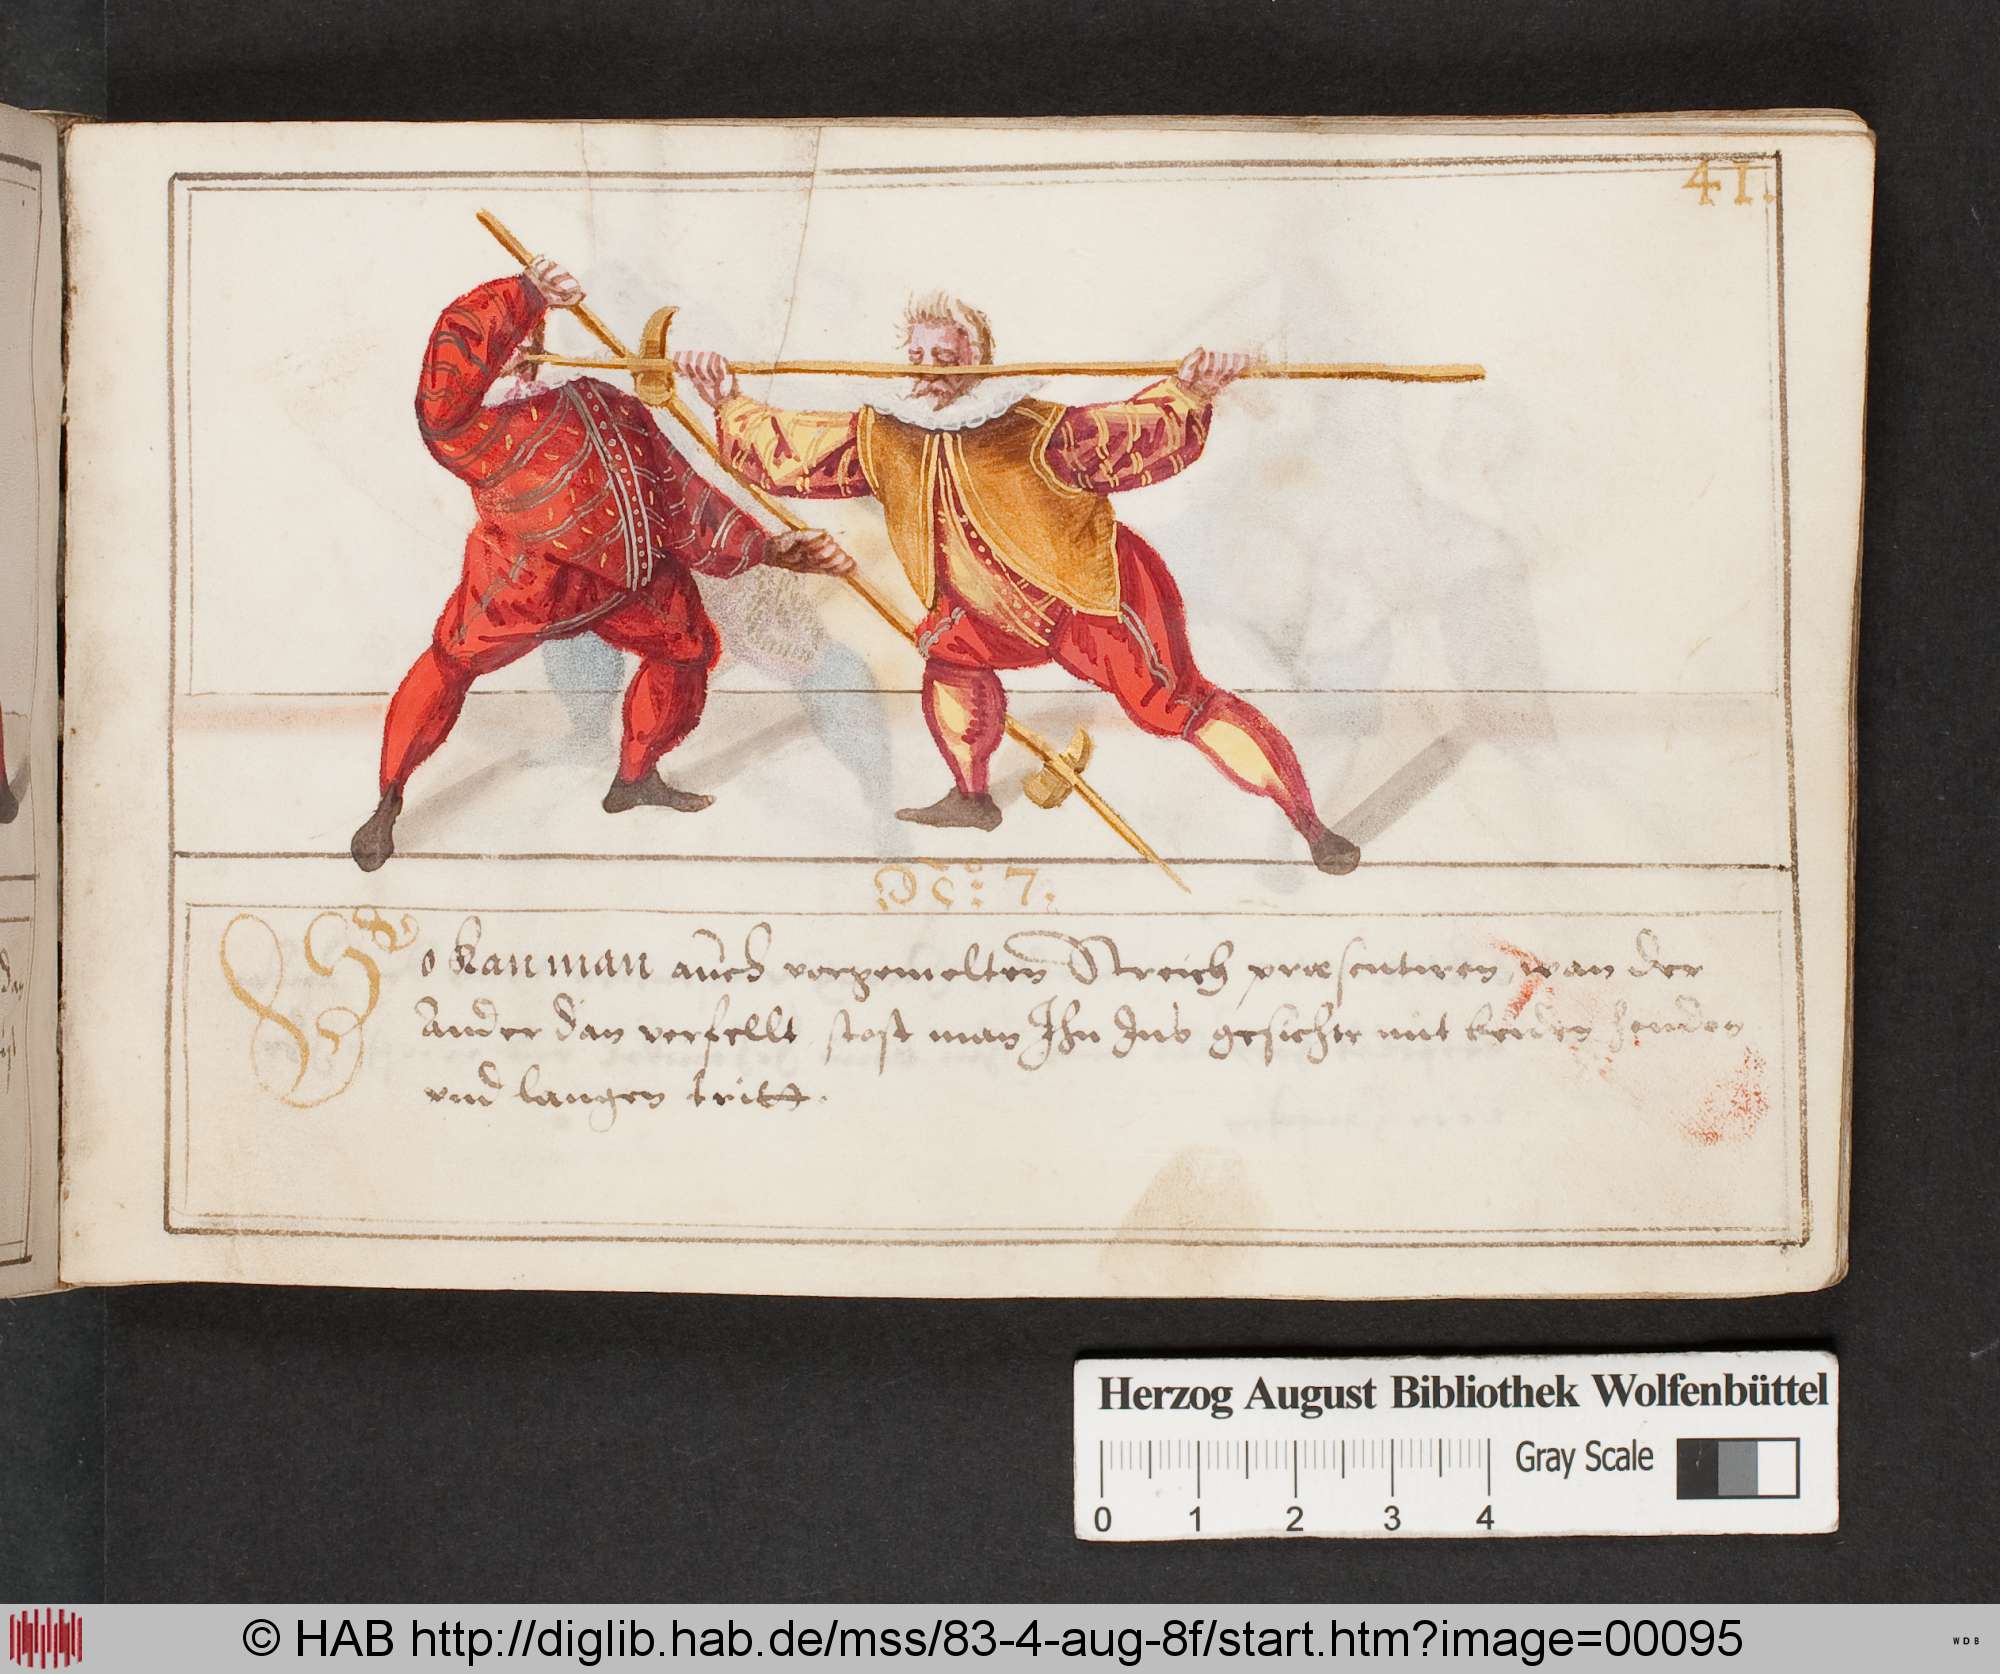 41.
No: 7.
So kan man auch vorgemelten Streich præsentiren, wan der
Ander dan verfellt stost man Ihn Ins gesichte mit beiden henden
vnd langen tritt.
Herzog August Bibliothek Wolfenbüttel
Gray Scale
0 1 2 3 4
© HAB http://diglib.hab.de/mss/83-4-aug-8f/start.htm?image=00095
WDB